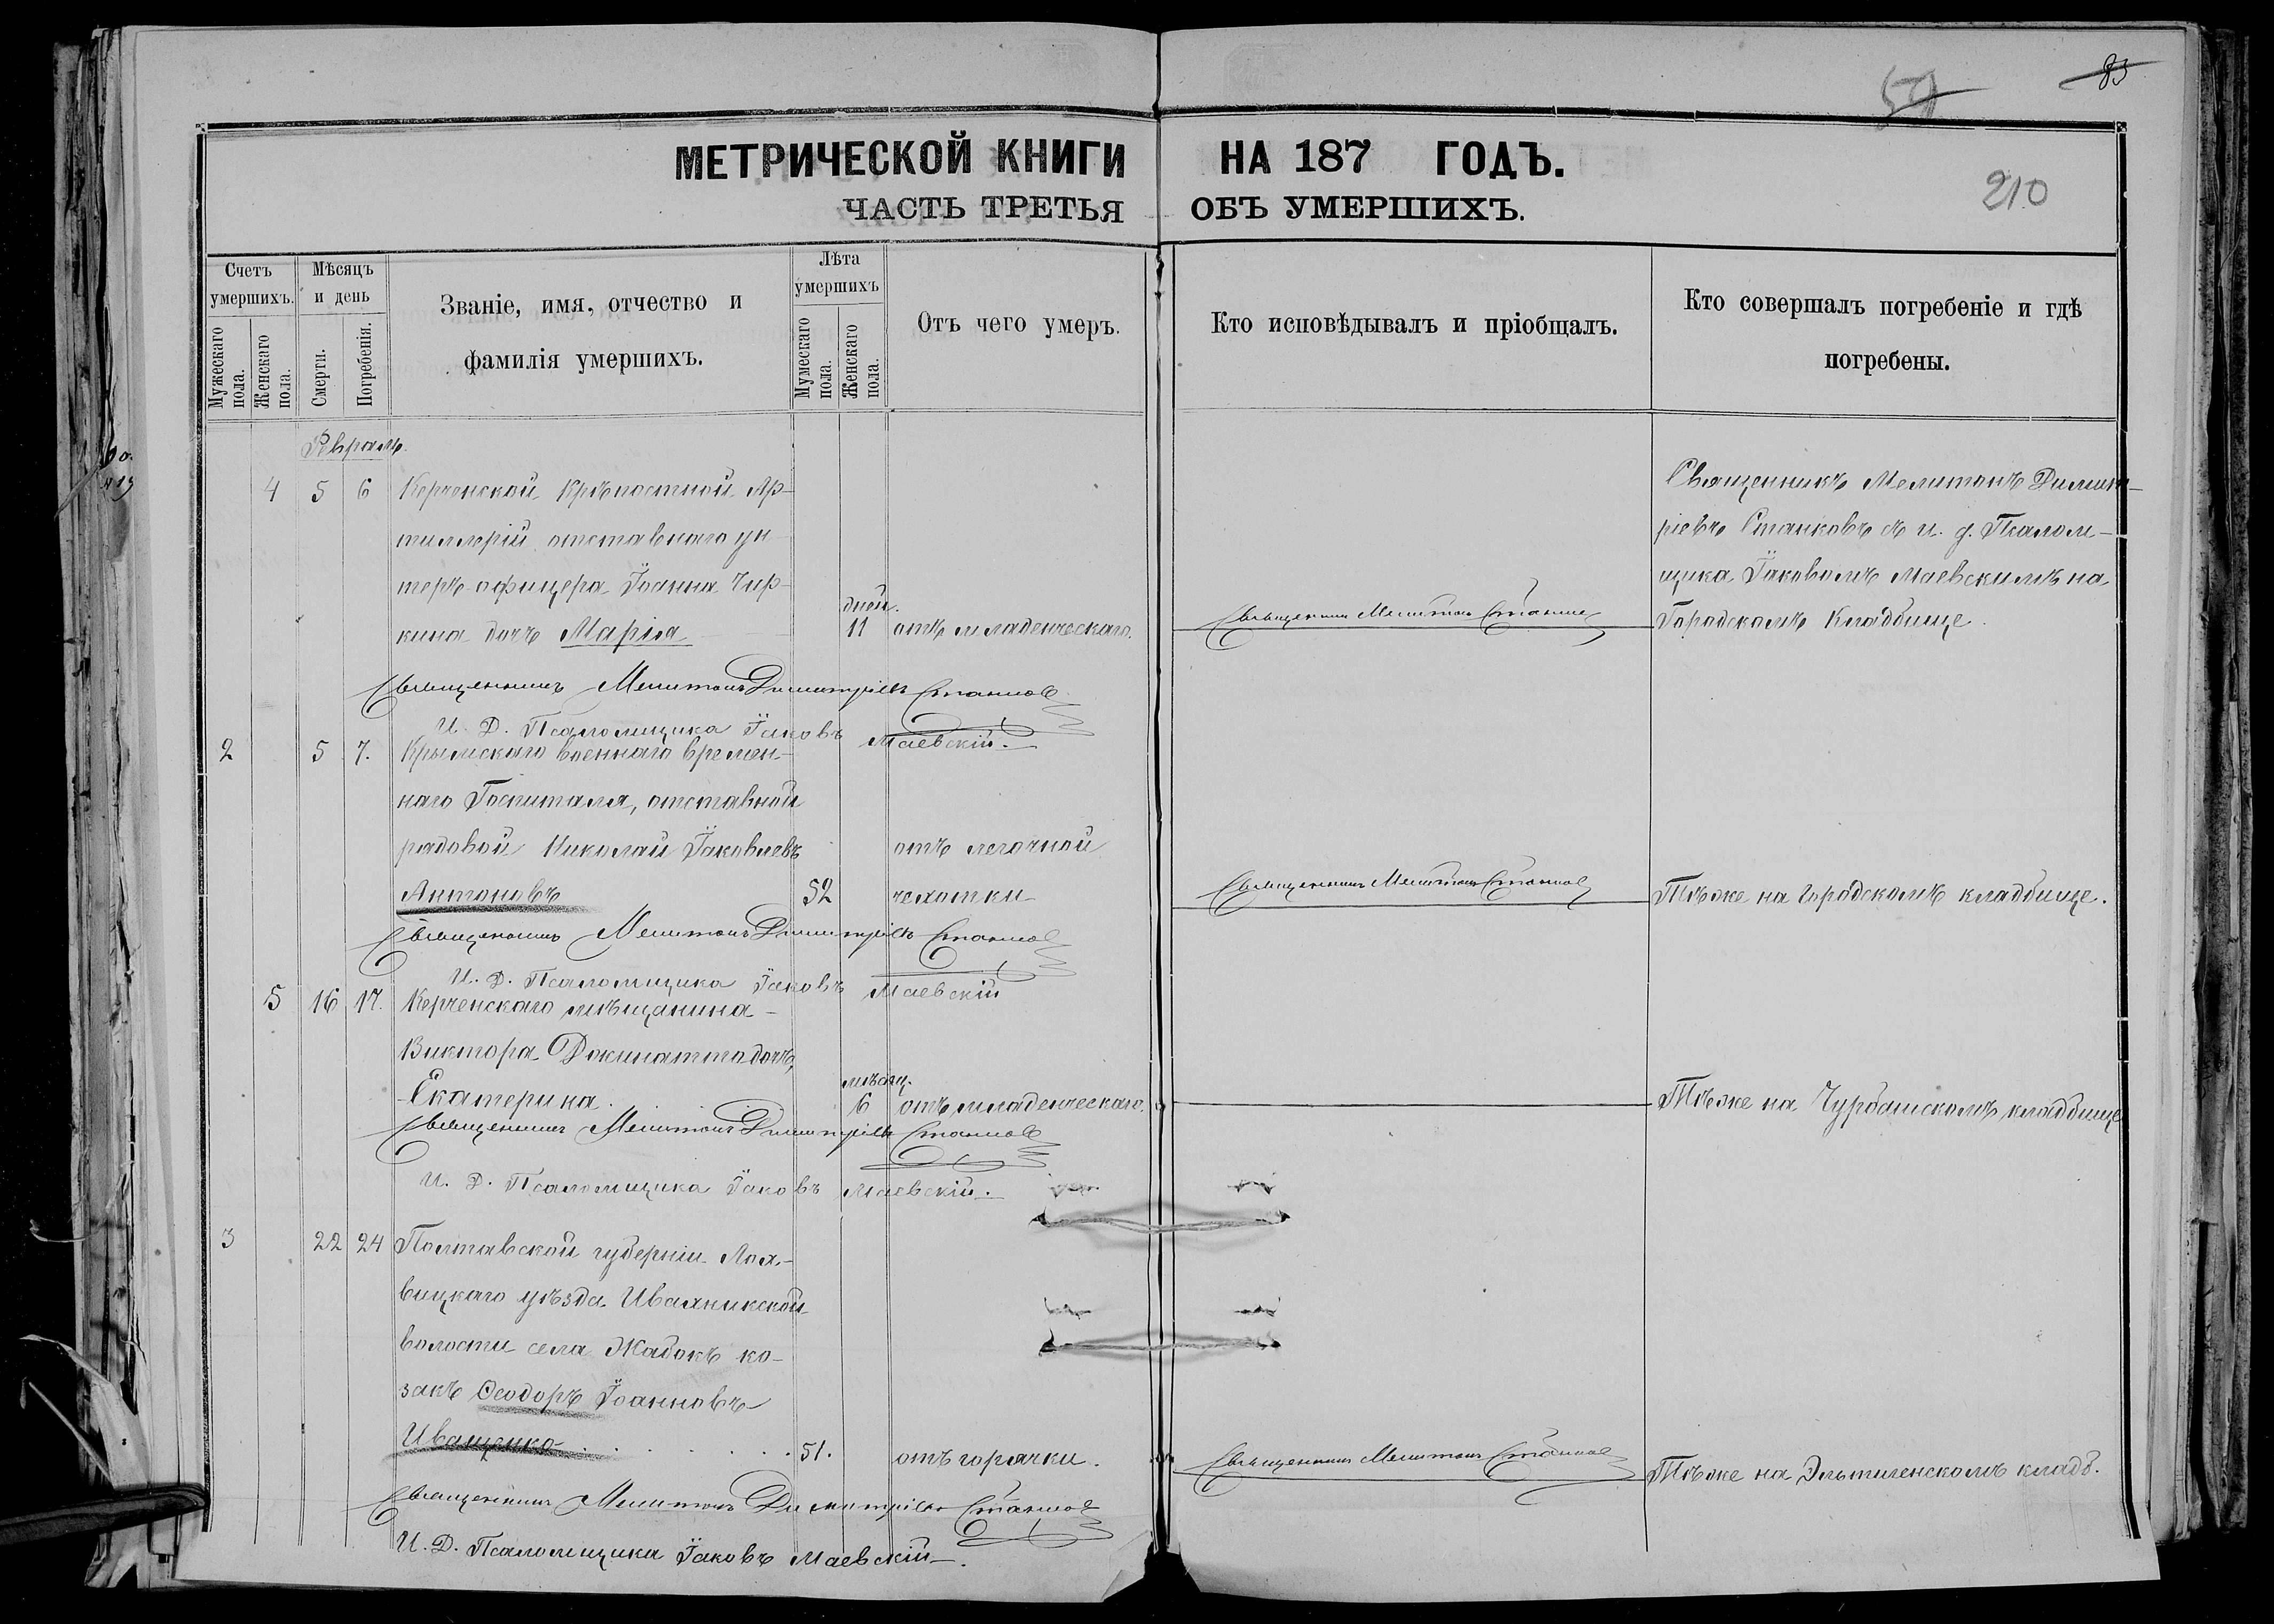 59
83
МЕТРИЧЕСКОЙ КНИГИ НА 187 ГОДЪ.
ЧАСТЬ ТРЕТЬЯ ОБЪ УМЕРШИХЪ.
210
Счетъ умершихъ.
Мужескаго пола.
Женскаго пола.
Мѣсяцъ и день
Смерти.
Погребенія.
Званіе, имя, отчество и
фамилія умершихъ.
Лѣта умершихъ
Мужескаго пола.
Женскаго пола.
Отъ чего умеръ.
Кто исповѣдывалъ и пріобщалъ.
Кто совершалъ погребеніе и гдѣ
погребены.
Февраль.
4 5 6 Керченской крѣпостной Ар-
тиллерій отставнаго ун
теръ-офицера Іоанна Чир-
кина дочь Марія
дней.
11 отъ младенческаго.
Священникъ Мелитонъ Станковъ
Священникъ Мелитонъ Димит-
ріевъ Станковъ съ и. д. Псалом-
щика Іаковомъ Маевскимъ на
Городскомъ Кладбище.
Священникъ Мелитонъ Димитріевъ Станковъ
И. Д. Псаломщика Іаковъ Маевскій.
2 5 7. Крымскаго военнаго времен-
наго Госпиталя, отставной
рядовой Николай Іаковлевъ
Антоновъ
52
отъ легочной
чехотки
Священникъ Мелитонъ Станковъ
Тѣже на городскомъ кладбище.
Священникъ Мелитонъ Димитріевъ Станковъ
И. Д. Псаломщика Іаковъ Маевскій
5 16 17. Керченскаго мѣщанина
Виктора Докинатто дочь,
Екатерина.
мѣсяц.
6 отъ младенческаго.
Тѣже на Чурбашскомъ кладбище
Священникъ Мелитонъ Димитріевъ Станковъ
И. Д. Псаломщика Іаковъ Маевскій.
3 22 24 Полтавской губерніи Лох-
вицкаго уѣзда
волости села Жабокъ ко-
закъ Ѳеодоръ Іоанновъ
Иващенко
51.
отъ горячки.
Священникъ Мелитонъ Станковъ
Тѣже на Эльтигенскомъ кладб.
Священникъ Мелитонъ Димитріевъ Станковъ
И. Д. Псаломщика Іаковъ Маевскій.